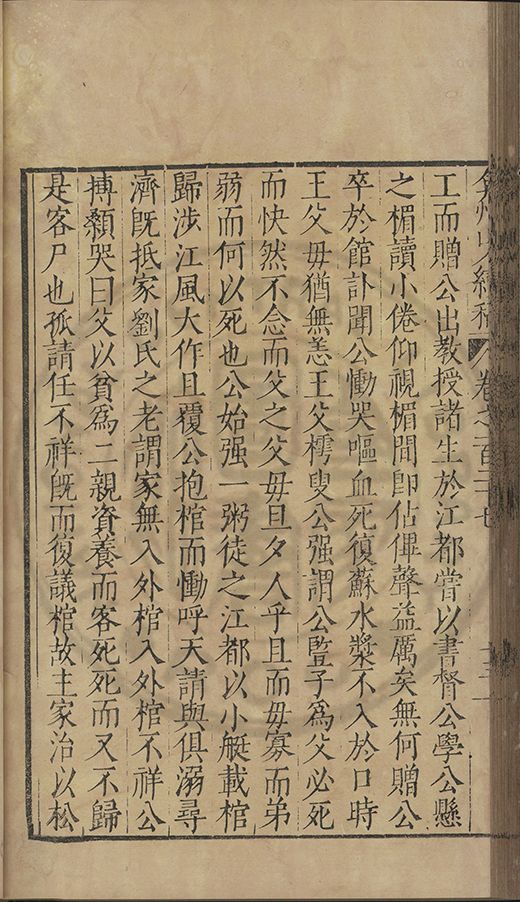 弇州山人續稿 卷之一百三十七
工而贈公出教授諸生於江都嘗以書督公學公懸
之楣讀小倦仰視楣間即佔僤聲益厲矣無何贈公
卒於館訃聞公慟哭嘔血死復蘇水漿不入於口時
王父毋猶無恙王父樗叟公强謂公豎子為父必死
而快然不念而父之父毋旦夕人乎且而毋寡而弟
弱而何以死也公始强一粥徒之江都以小艇載棺
歸涉江風大作且覆公抱棺而慟呼天請與俱溺尋
濟旣抵家劉氏之老謂家無入外棺入外棺不祥公
搏顙哭曰父以貧為二親資養而客死死而又不歸
是客尸也孤請任不祥旣而復議棺故主家治以松